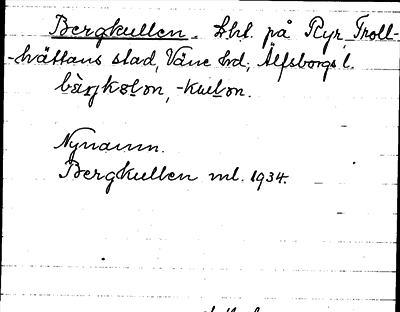 Bergkullen. Lht. på Ryr, Troll-
-hättans stad, Väne hd, Älfsborgs l.
bärjkɵlən, -kulən.
Nynamn.
Bergkullen ml. 1934.